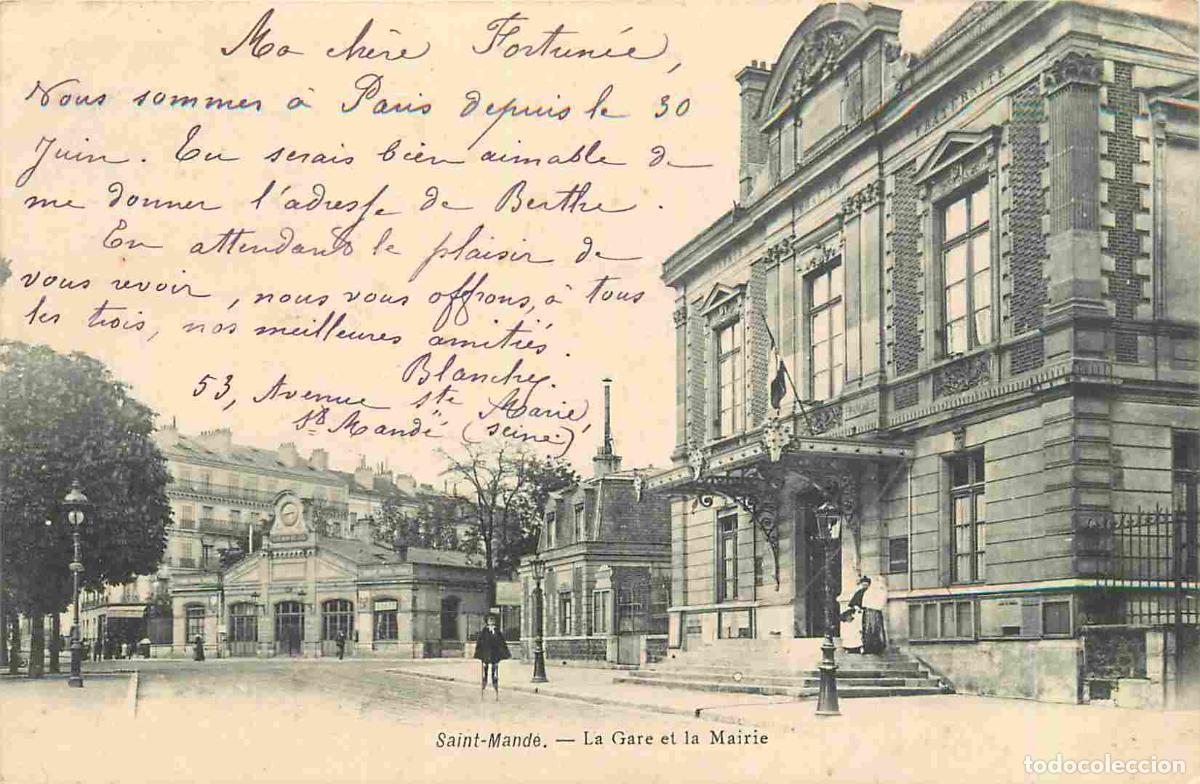 Ma chère Fortunée,
Nous sommes à Paris depuis le 30
Juin. Tu serais bien aimable de
me donner l'adresse de Berthe.
En attendant le plaisir de
vous revoir, nous vous offrons, à tous
les trois, nos meilleures amitiés.
Blanche.
53, Avenue Ste Marie,
St Mandé (Seine)
FRATERNITÉ
Saint-Mandé. — La Gare et la Mairie
todocoleccion